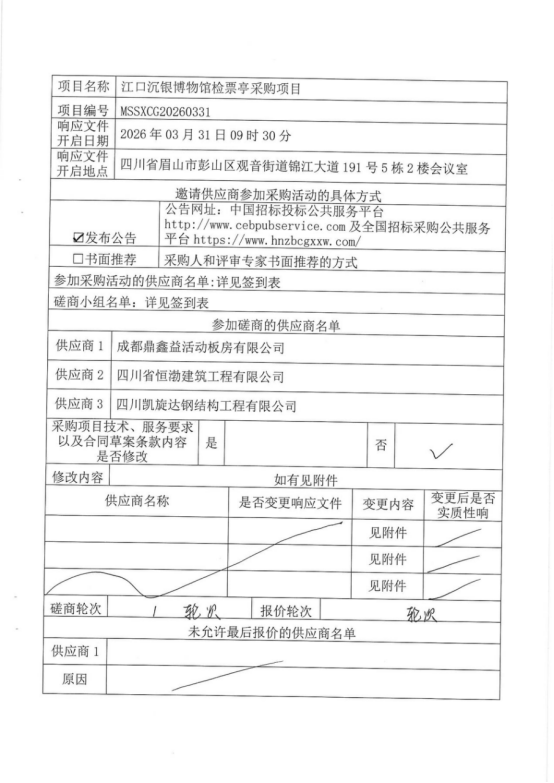 项目名称 江口沉银博物馆检票亭采购项目
项目编号 MSSXCG20260331
响应文件
开启日期 2026年03月31日09时30分
响应文件
开启地点 四川省眉山市彭山区观音街道锦江大道191号5栋2楼会议室
邀请供应商参加采购活动的具体方式
公告网址：中国招标投标公共服务平台
http://www.cebpubservice.com及全国招标采购公共服务
☑发布公告 平台https://www.hnzbcgxxw.com/
☐书面推荐 采购人和评审专家书面推荐的方式
参加采购活动的供应商名单:详见签到表
磋商小组名单：详见签到表
参加磋商的供应商名单
供应商1 成都鼎鑫益活动板房有限公司
供应商2 四川省恒渤建筑工程有限公司
供应商3 四川凯旋达钢结构工程有限公司
采购项目技术、服务要求
以及合同草案条款内容 是 否 ✓
是否修改
修改内容 如有见附件
供应商名称 是否变更响应文件 变更内容 变更后是否
实质性响
见附件
见附件
见附件
磋商轮次 1 轮次 报价轮次 轮次
未允许最后报价的供应商名单
供应商1
原因